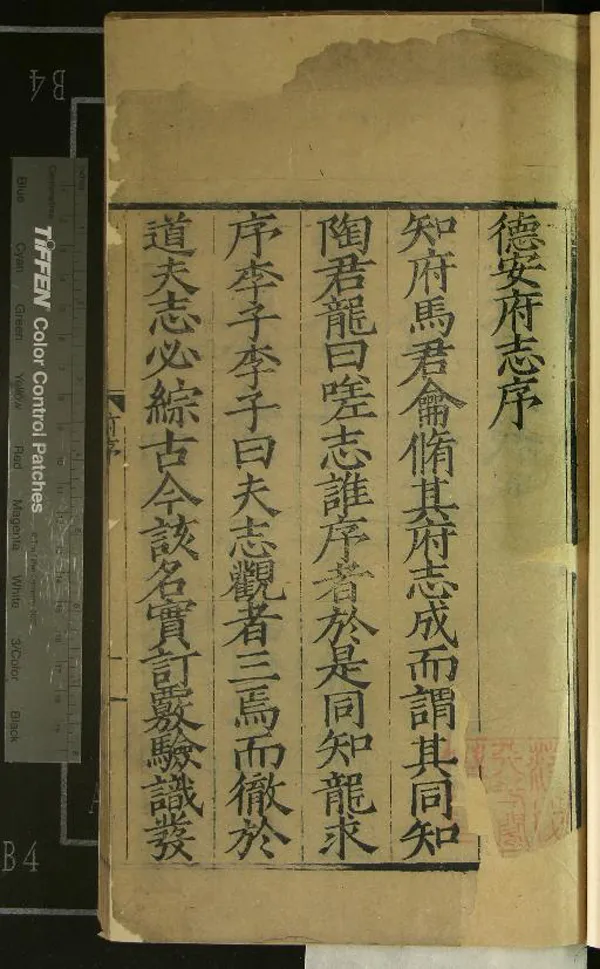 德安府志序
知府馬君龠脩其府志成而謂其同知
陶君龍曰嗟志誰序者於是同知龍求
序李子李子曰夫志觀者三焉而徹於
道夫志必綜古今該名實訂覈驗識發
府序
TIFFEN Color Control Patches
Blue Cyan Green Yellow Red Magenta White 3/Color Black
B4
B4